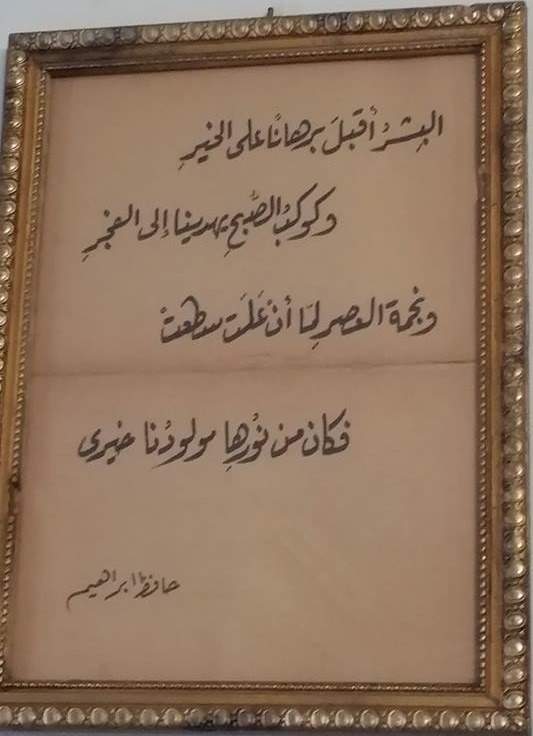 البِشرُ أقبلَ برهانًا على الخيرِ
وكوكبُ الصُّبحِ يهدينا إلى الفجرِ
ونجمة العصر لمّا أن عَلَت سطعتْ
فكان من نُورِها مولودُنا خيرى
حافظ ابراهيم